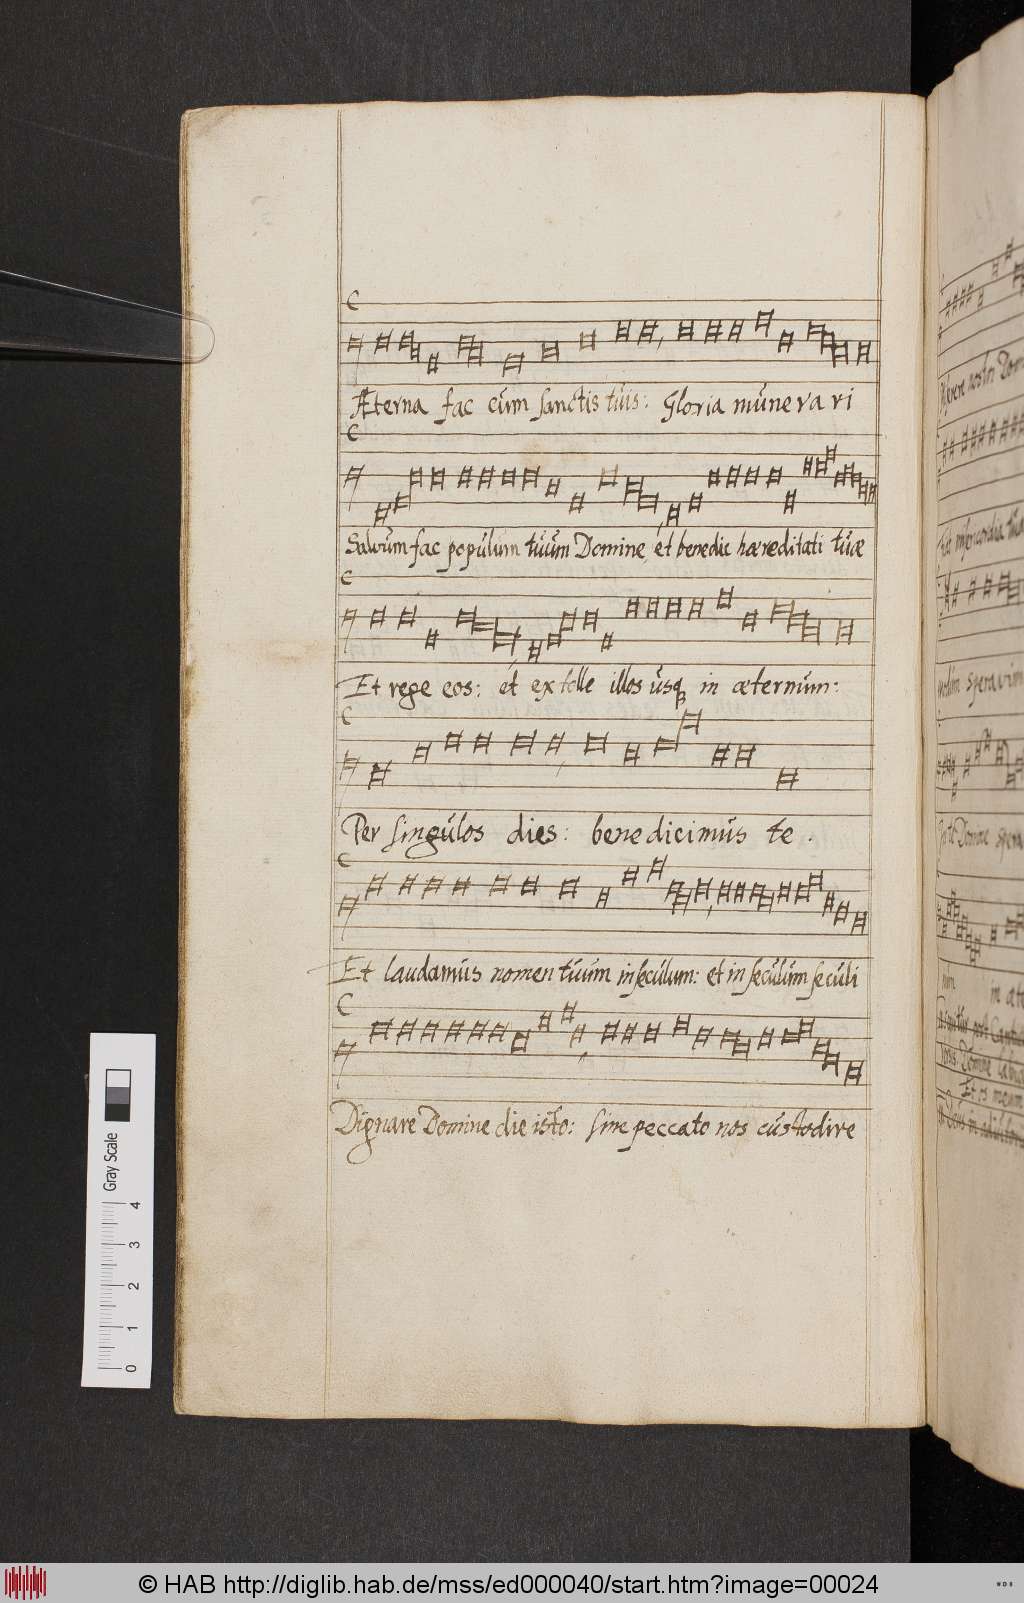 Æterna fac cum sanctis tuis: Gloria munerari
Salvum fac populum tuum Domine, et benedic hæreditati tuæ
Et rege eos: et extolle illos usq in æternum:
Per singulos dies: benedicimus te.
Et laudamus nomen tuum in seculum: et in seculum seculi
Dignare Domine die isto: sine peccato nos custodire
Gray Scale
0 1 2 3 4
© HAB http://diglib.hab.de/mss/ed000040/start.htm?image=00024